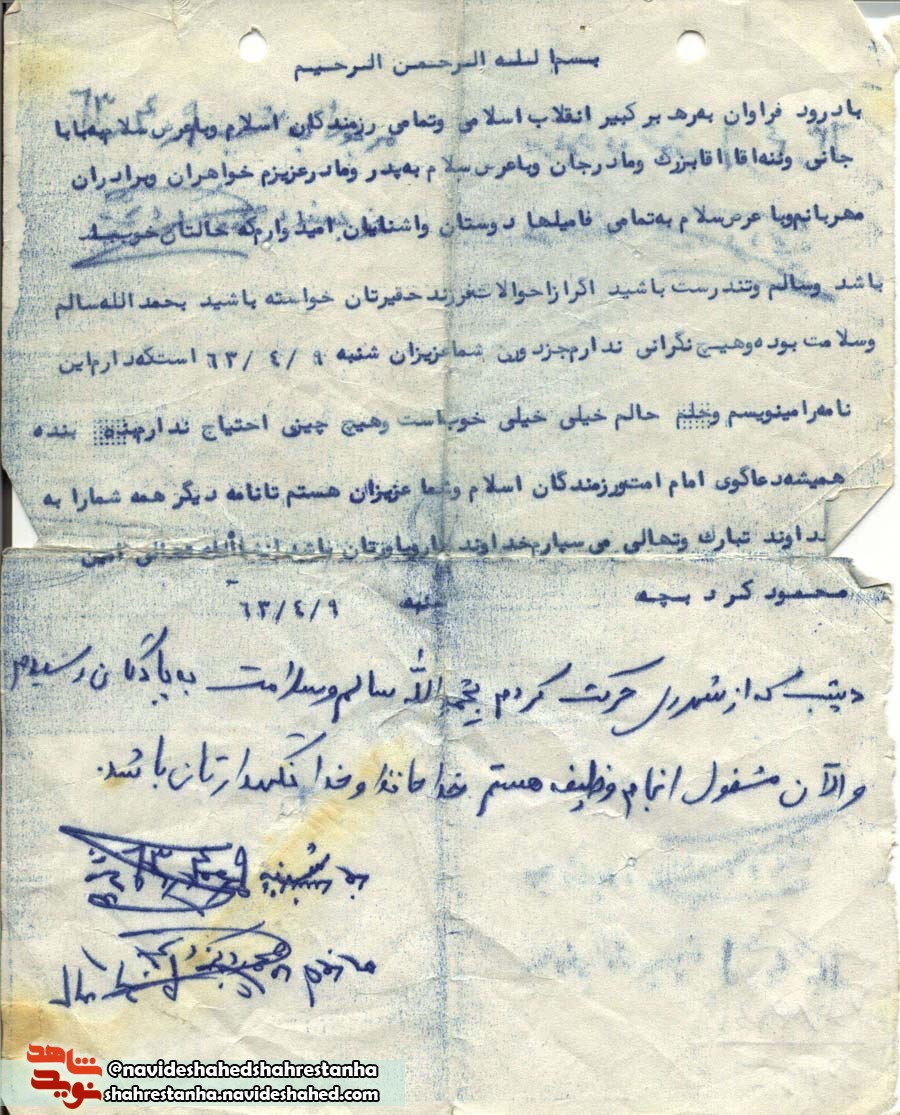 بسم الله الرحمن الرحیم
بادرود فراوان به رهبر کبیر انقلاب اسلامی وتمامی رزمندگان اسلام وباعرض سلام به بابا
جانی وننه اقا اقابزرك ومادرجان وباعرض سلام به پدر ومادرعزیزم خواهران وبرادران
مهربانم وبا عرض سلام به تمامی فامیلها دوستان واشنایان امیدوارم که حالتان خوب
باشد وسالم وتندرست باشید اگرازاحوالات فرزند حقیرتان خواسته باشید بحمد الله سالم
وسلامت بوده وهیچ نگرانی ندارم جزدورن شماعزیزان شنبه ۶۳/۴/۹ است که دارم این
نامه رامینویسم و حالم خیلی خیلی خوب است وهیچ چیزی احتیاج ندارم بنده
همیشه دعاگوی امام امت ورزمندگان اسلام وشما عزیزان هستم تانامه دیگر همه شمارا به
خداوند تبارك وتعالی می سپارم خداوند یارویاورتان باشد انشاالله تعالی امین
محمود کرد بچه شنبه ۶۳/۴/۹
دیشب که از شهرری حرکت کردم بحمدالله سالم وسلامت به پادگان رسیدم
و الآن مشغول انجام وظیفه هستم خدا حافظ و خدا نگهدارتان باشد.
شنبه
شاهد
نوید
@navideshahedshahrestanha
shahrestanha.navideshahed.com